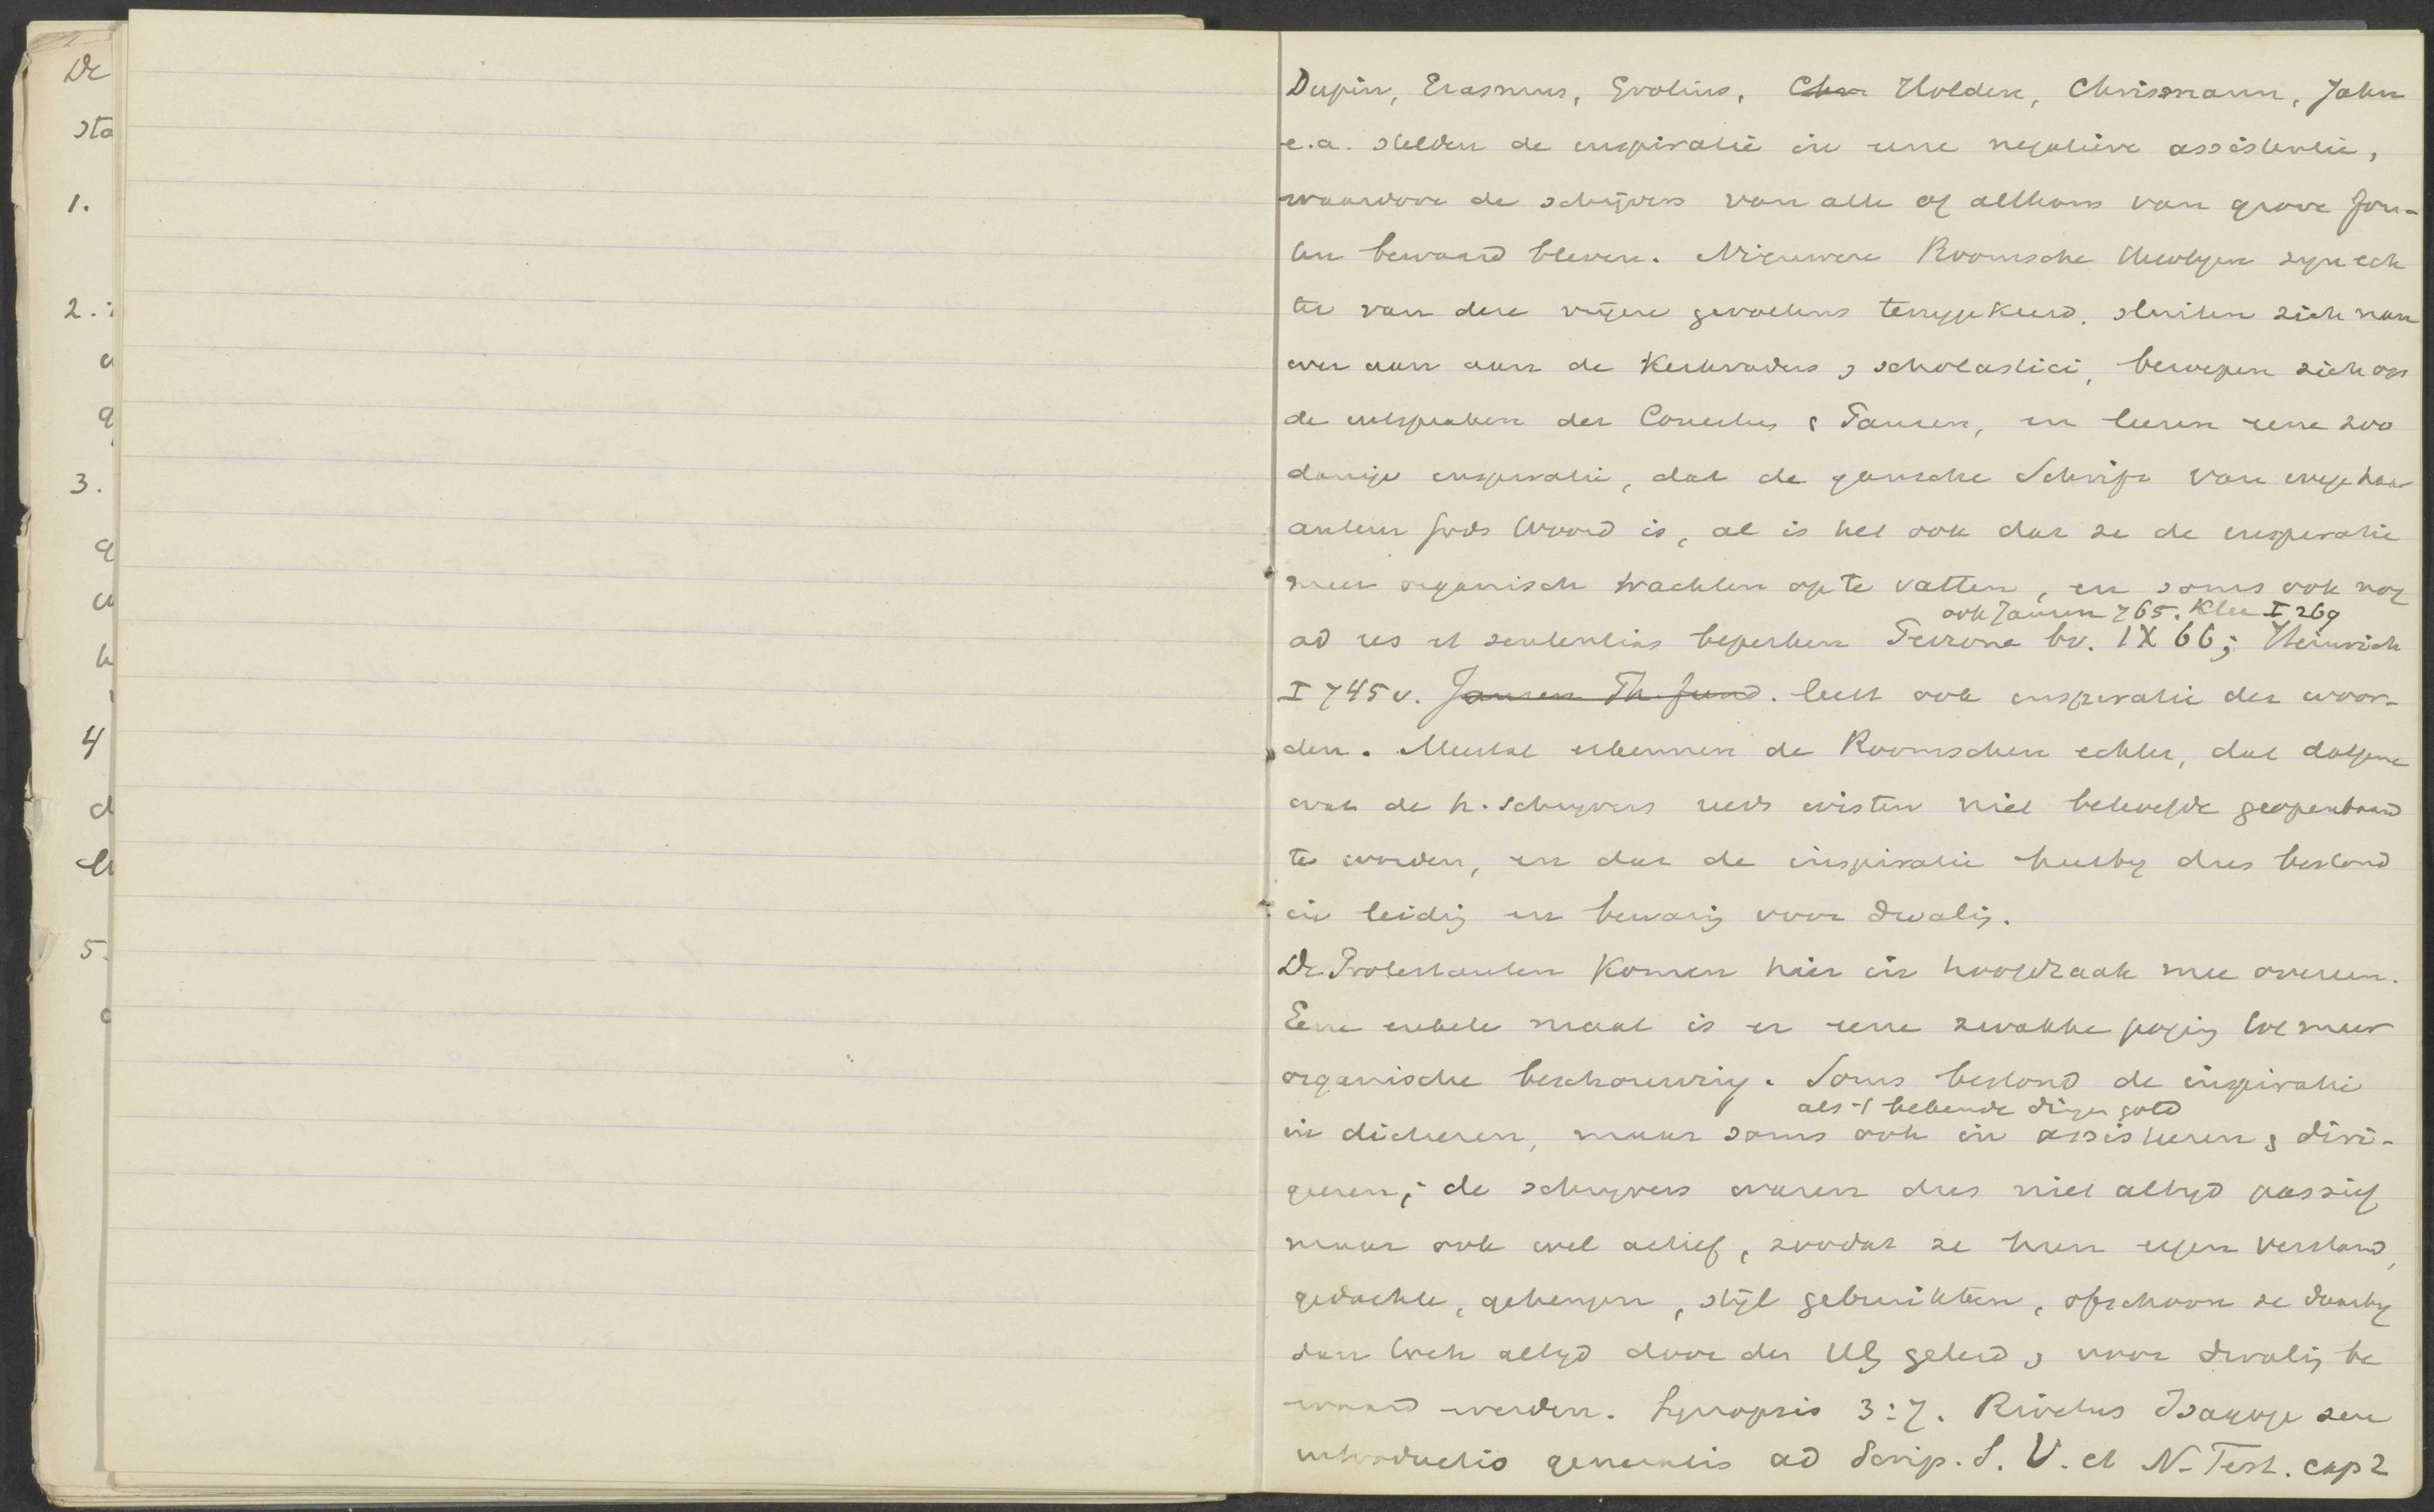 De
sta
1.
2.
3.
4
5.
Dupin, Erasmus, Grotius, Chr Holden, Chrismann, Jahn
e.a. stelden de inspiratie in eene negatieve assistentie,
waardoor de schrijvers van alle of althans van grove fou-
ten bewaard bleven. Nieuwere Roomsche theologen zyn ech
ter van deze vrijere gevoelens teruggekeerd, sluiten zich nau
wer aan aan de Kerkvaders & scholastici, beroepen zich op
de uitspraken der Concilies & Pausen, en leeren eene zoo
danige inspiratie, dat de gansche Schrift van wege haar
auteur Gods Woord is, al is het ook dat ze de inspiratie
meer organisch trachten op te vatten, en soms ook nog
ook Jansen 765. Klee I 269
ad res et sententias beperken Perrone bv. IX 66; Heinrich
I 745 v. Jansen Th. fund. leert ook inspiratie der woor-
den. Meestal erkennen de Roomschen echter, dat datgene
wat de h. schryvers reeds wisten niet behoefde geopenbaard
te worden, en dat de inspiratie hierby dus bestond
in leidig en bewarig voor dwalig.
De Protestanten komen hier in hoofdzaak mee overeen.
Eene enkele maal is er eene zwakke pogig tot meer
organische beschouwing. Soms bestond de inspiratie
als 't bekende dingen gold
in dicteren, maar soms ook in assisteeren & diri-
geeren; de schryvers waren dus niet altyd passief
maar ook wel actief, zoodat ze hun eigen verstand,
gedachte, geheugen, stijl gebruikten, ofschoon ze daarby
dan toch altyd door den HG geleid & voor dwalig be
waard werden. Synopsis 3:7. Rivetus Isagoge seu
introductio generalis ad Scrip. S. V. et N. Test. cap 2